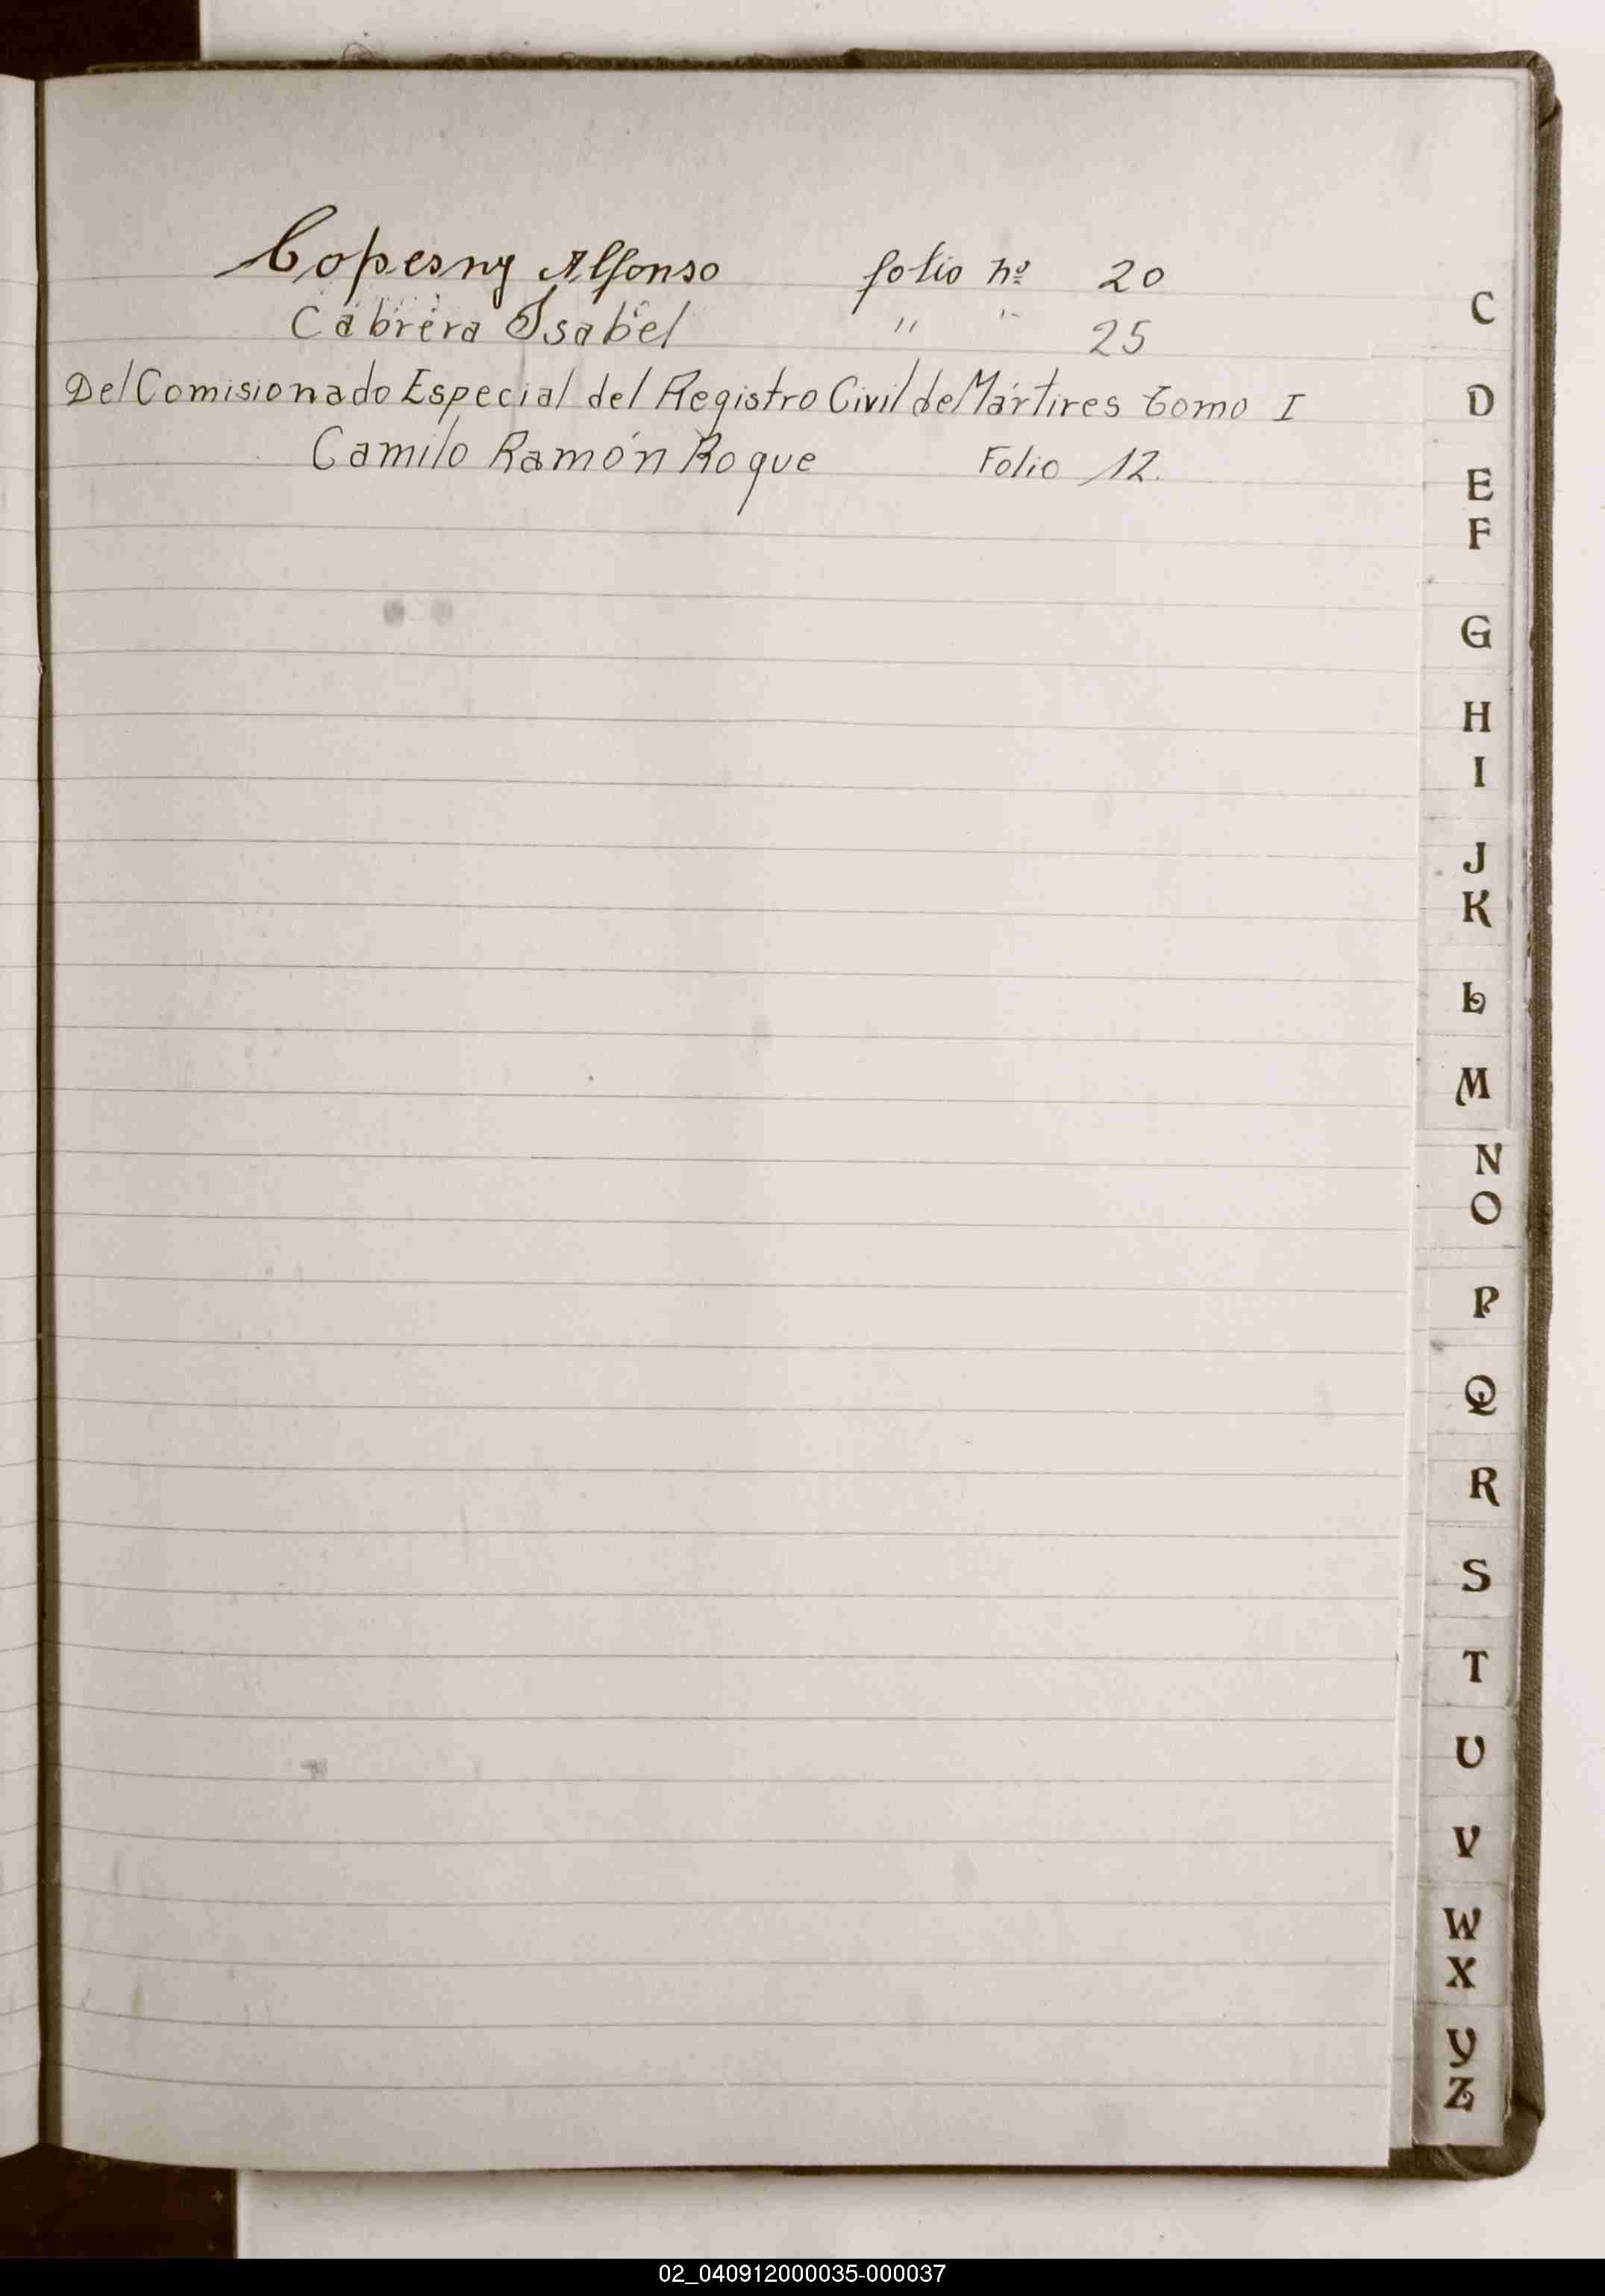 Copesny Alfonso folio nº 20
Cabrera Isabel " " 25
Del Comisionado Especial del Registro Civil de Mártires Tomo I
Camilo Ramón Roque Folio 12.
C
D
E
F
G
H
I
J
K
L
M
N
O
P
Q
R
S
T
U
V
W
X
Y
Z
02_040912000035-000037